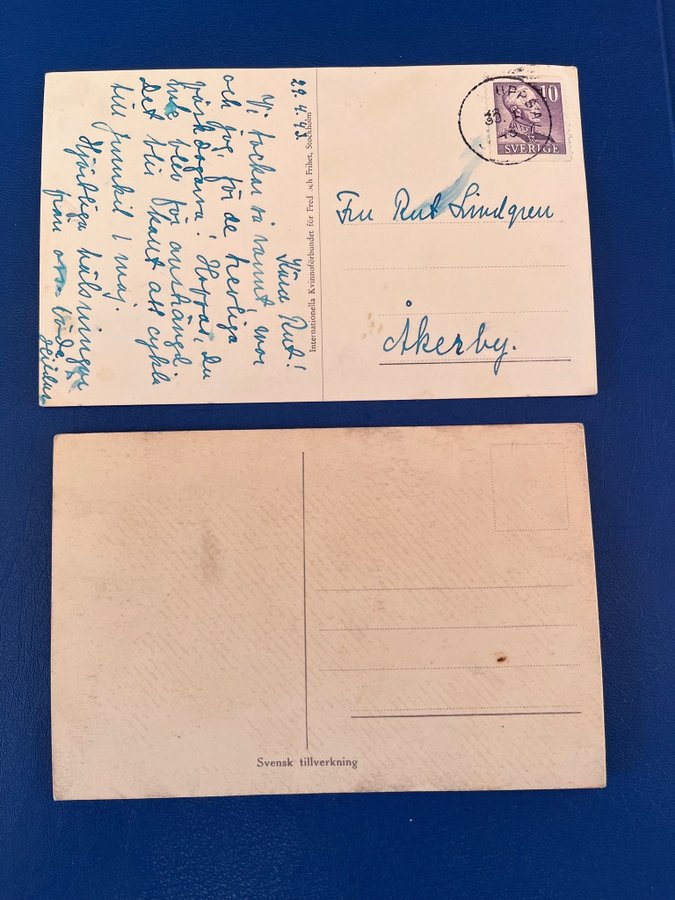 29.4.43
Kära Rut!
Vi tackar så varmt, mor
och jag, för de härliga
påskägarna! Hoppas, Du
inte blev för ansträngd.
Det blir skönt att cykla
till Jumkil i maj.
Hjärtliga hälsningar
från oss båda
Internationella Kvinnoförbundet för Fred och Frihet, Stockholm
10
UPPSALA
30.
SVERIGE
Fru Rut Lindgren
Åkerby.
Svensk tillverkning